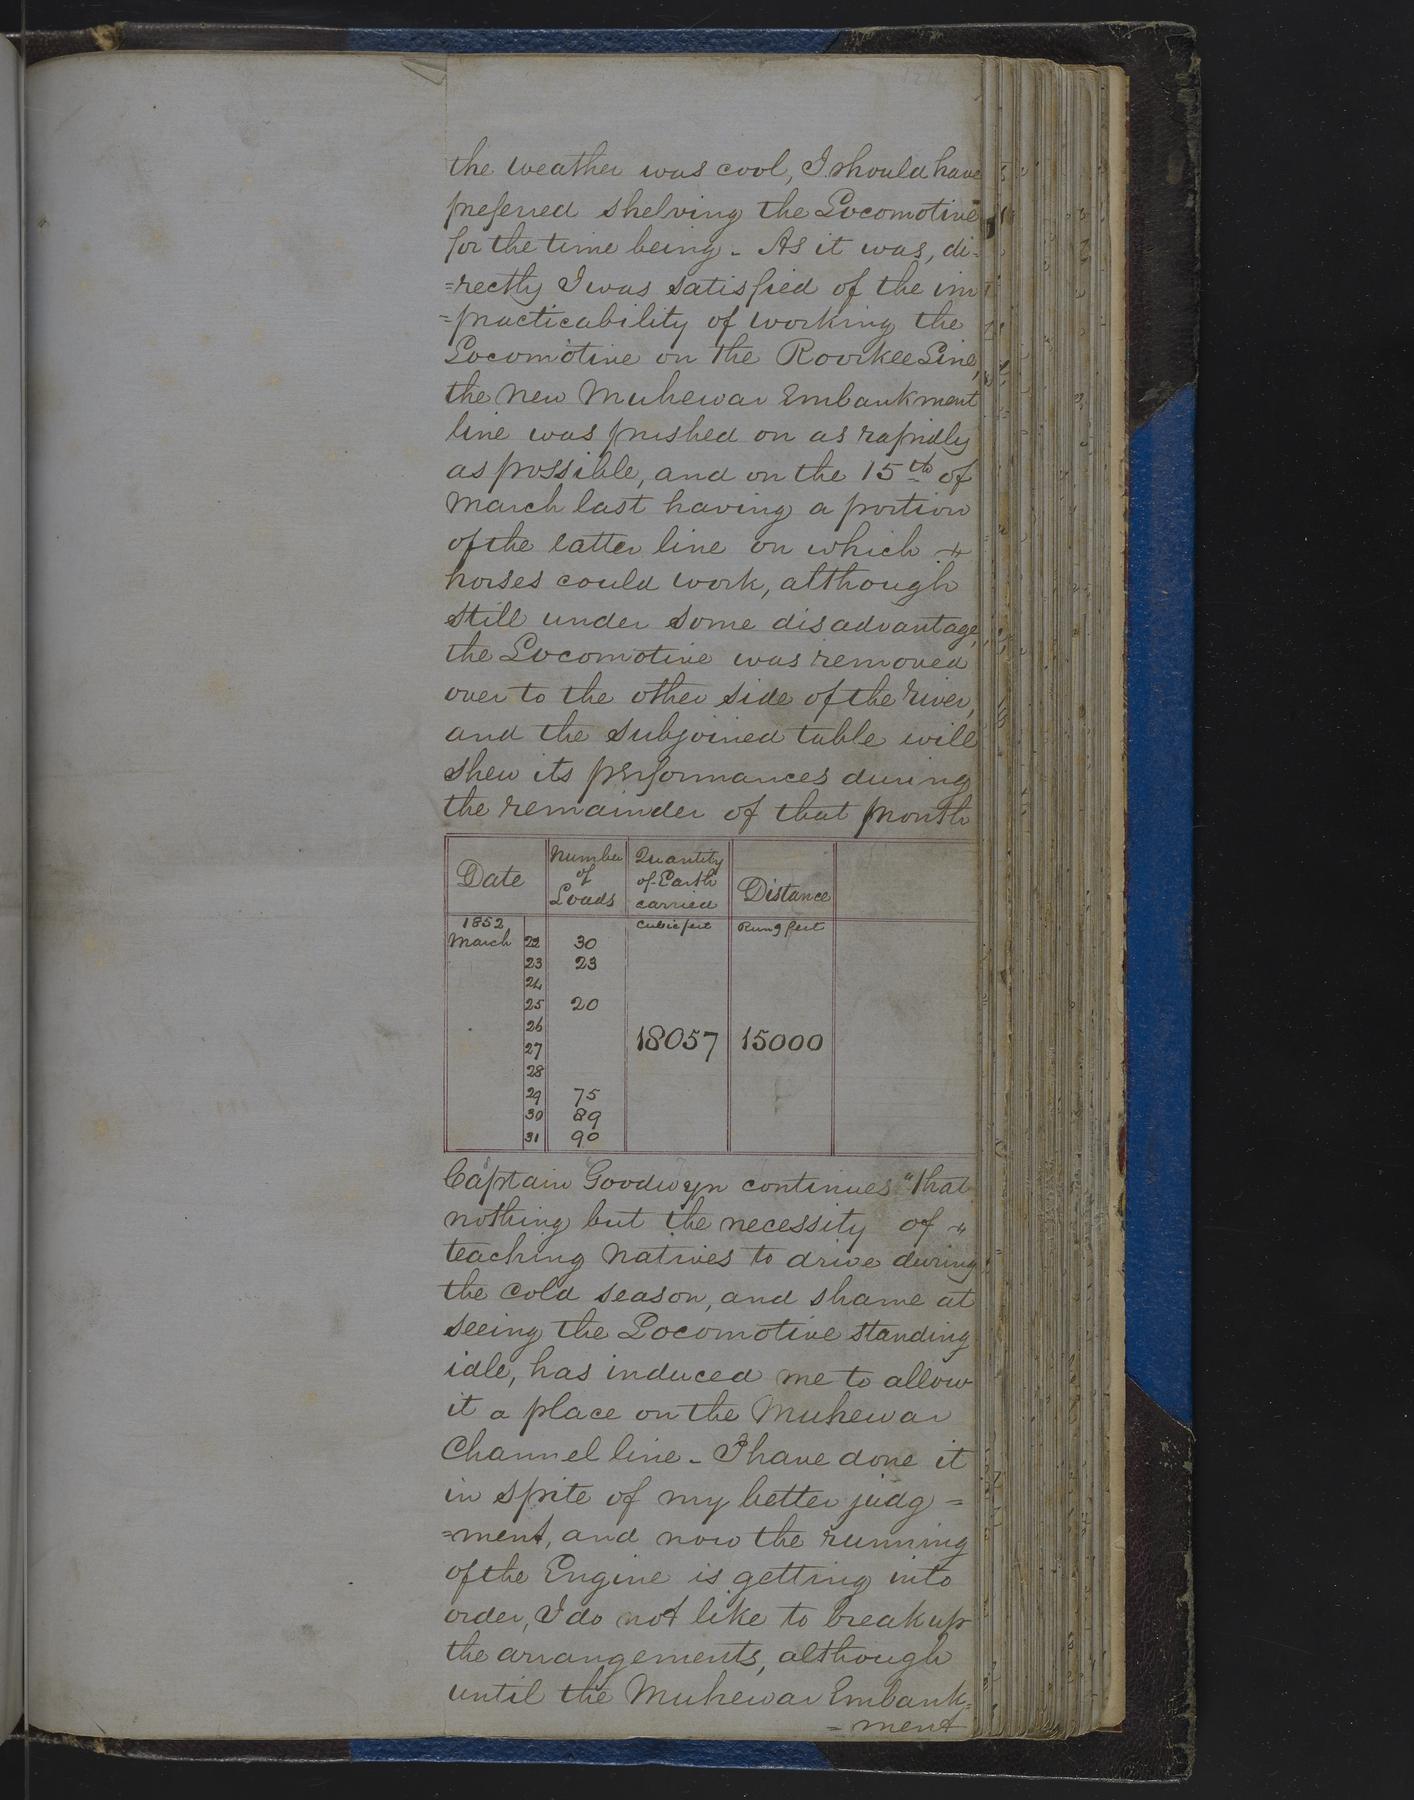 the weather was cool, I should have
preferred shelving the Locomotive
for the time being - As it was, di=
=rectly I was satisfied of the im
=practicability of working the
Locomotive on the Roorkee Line,
the New Muhewar Embankment
line was pushed on as rapidly
as possible, and on the 15th of
March last having a portion
of the latter line on which
horses could work, although
still under some disadvantage,
the Locomotive was removed
over to the other side of the River,
and the subjoined table will
shew its performances during
the remainder of that month
Date Number of Loads Quantity of Earth carried Distance
1852 Cubic feet Rung feet
March 22 30
23 23
24
25 20
26
27 18057 15000
28
29 75
30 89
31 90
Captain Goodwyn continues "that
nothing but the necessity of
teaching Natives to drive during
the cold season, and shame at
seeing the Locomotive standing
idle, has induced me to allow
it a place on the Muhewar
Channel line - I have done it
in spite of my better judg=
=ment, and now the running
of the Engine is getting into
order, I do not like to break up
the arrangements, although
until the Muhewar Embank=
=ment